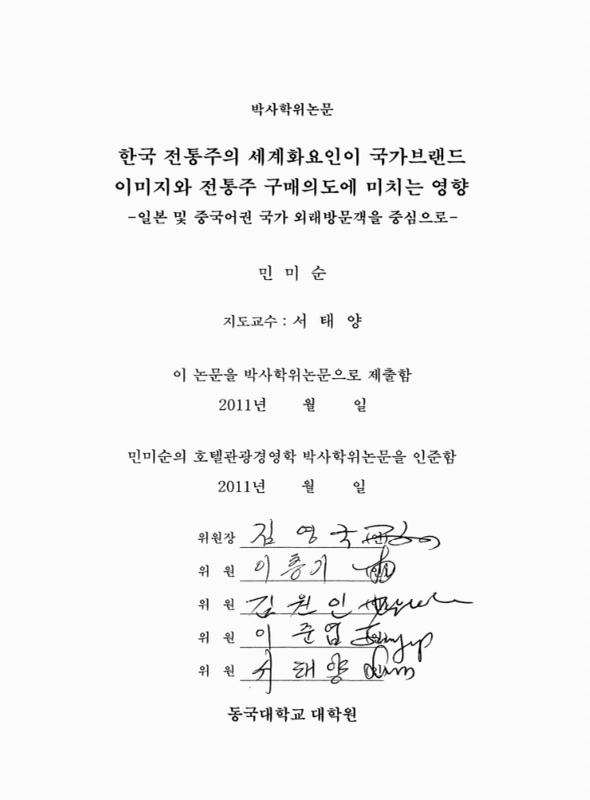 박사학위논문
한국 전통주의 세계화요인이 국가브랜드
이미지와 전통주 구매의도에 미치는 영향
-일본 및 중국어권 국가 외래방문객을 중심으로-
민 미 순
지도교수 : 서 태 양
이 논문을 박사학위논문으로 제출함
2011년 월 일
민미순의 호텔관광경영학 박사학위논문을 인준함
2011년 월 일
위원장 김 영 국
위 원 이 충 기
위 원 김 원 인
위 원 이 준 엽
위 원 서 태 양
동국대학교 대학원